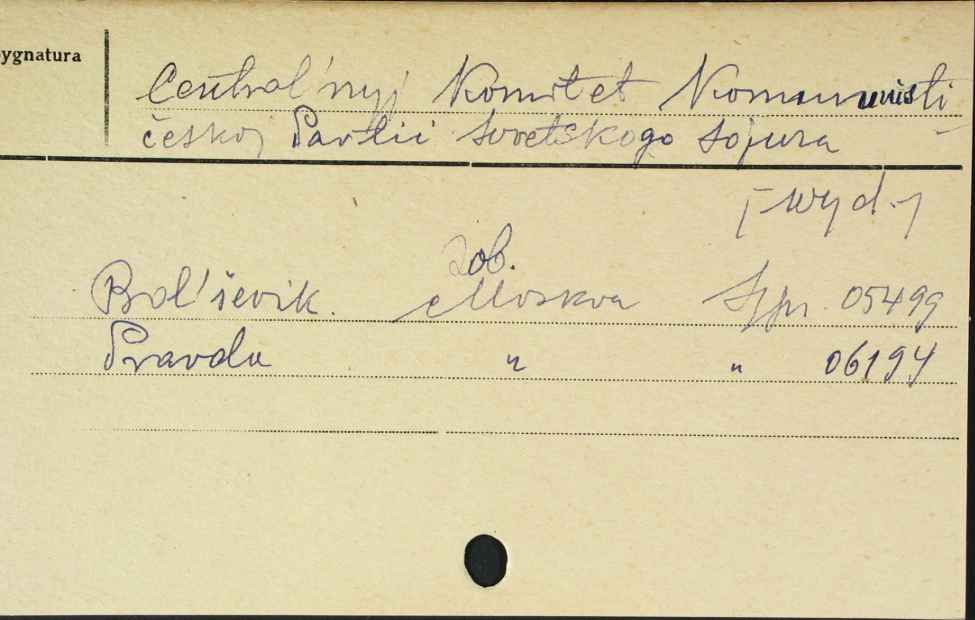 sygnatura
Central'nyj Komitet Kommunisti
českoj Partii Sovetskogo Sojuza
[-wyd.-]
Zob.
Bol'ševik. Moskva Szpr. 05499
Pravda " " 06194